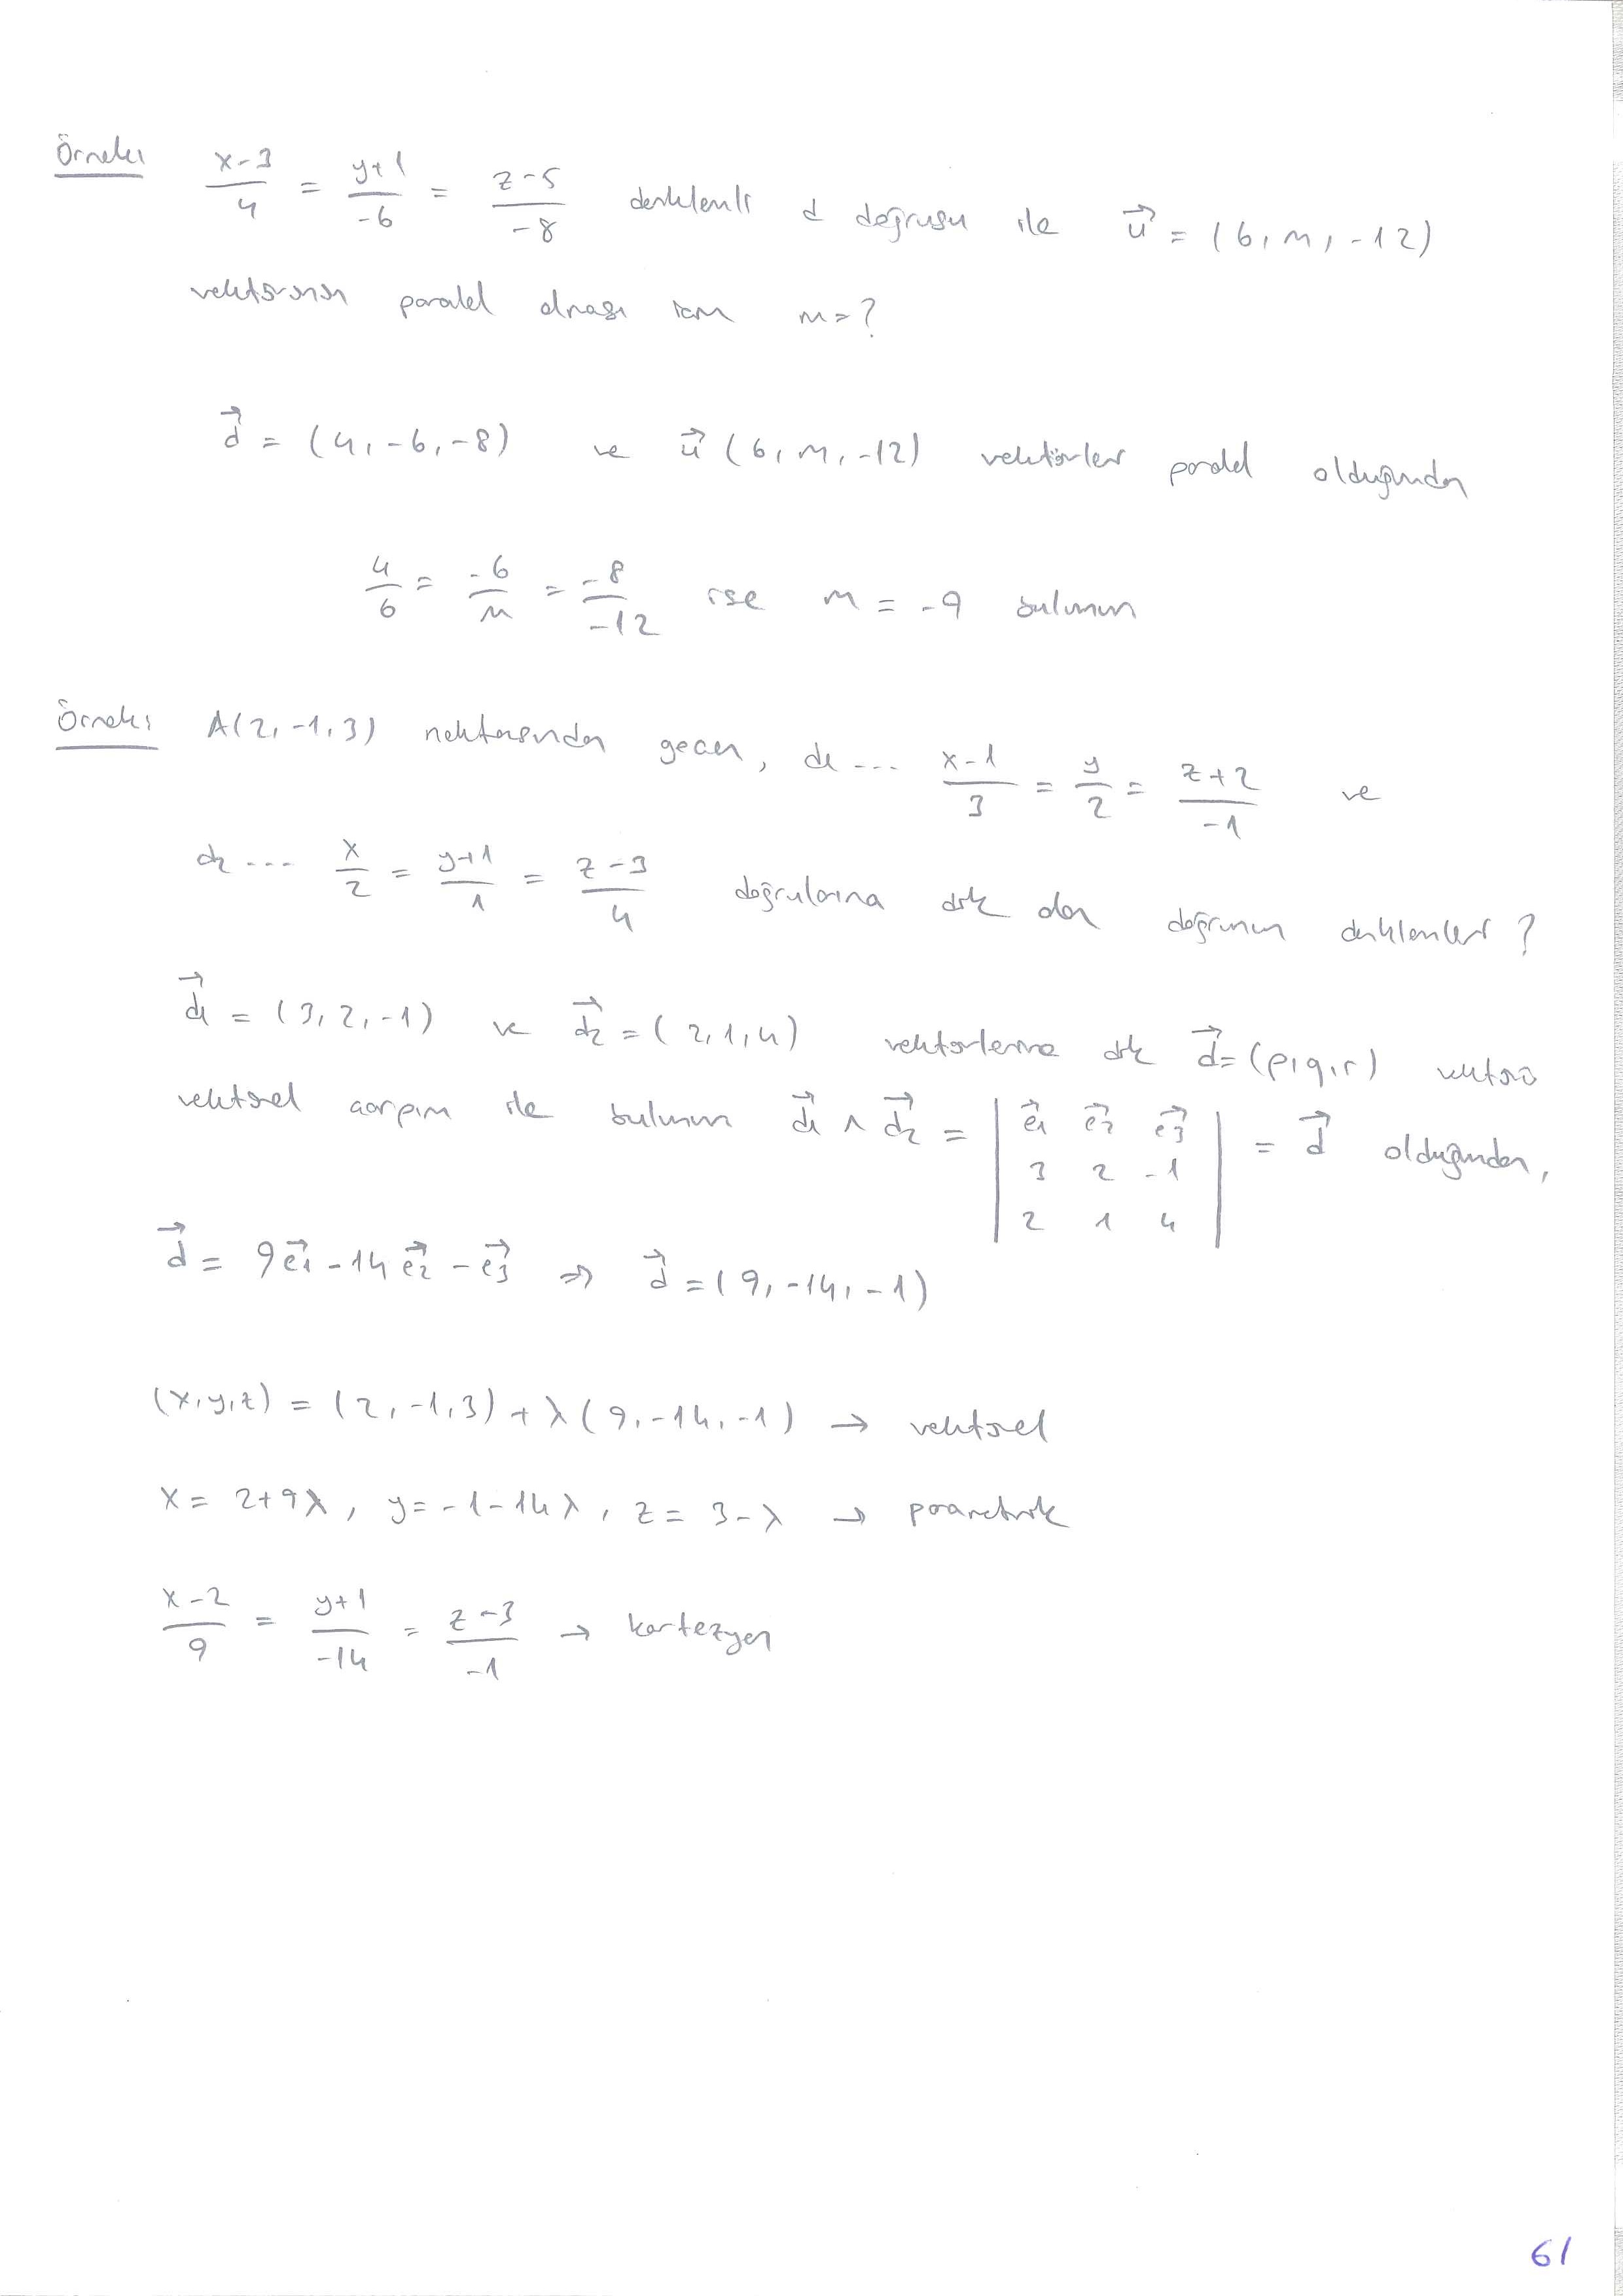 Örnek: x-3/4 = y+1/-6 = z-5/-8 denklemli d doğrusu ile u⃗ = (6, m, -12)
vektörünün paralel olması için m=?
d⃗ = (4, -6, -8) ve u⃗ (6, m, -12) vektörleri paralel olduğundan
4/6 = -6/m = -8/-12 ise m = -9 bulunur
Örnek: A(2, -1, 3) noktasından geçen, d1 ... x-1/3 = y/2 = z+2/-1 ve
d2 ... x/2 = y+1/1 = z-3/4 doğrularına dik olan doğrunun denklemleri ?
d⃗1 = (3, 2, -1) ve d⃗2 = (2, 1, 4) vektörlerine dik d⃗ = (p, q, r) vektörü
vektörel çarpım ile bulunur d⃗1 ∧ d⃗2 = | e⃗1 e⃗2 e⃗3 | = d⃗ olduğundan,
| 3 2 -1 |
| 2 1 4 |
d⃗ = 9e⃗1 - 14e⃗2 - e⃗3 ⇒ d⃗ = (9, -14, -1)
(x, y, z) = (2, -1, 3) + λ (9, -14, -1) → vektörel
x = 2+9λ, y = -1-14λ, z = 3-λ → parametrik
x-2/9 = y+1/-14 = z-3/-1 → kartezyen
61